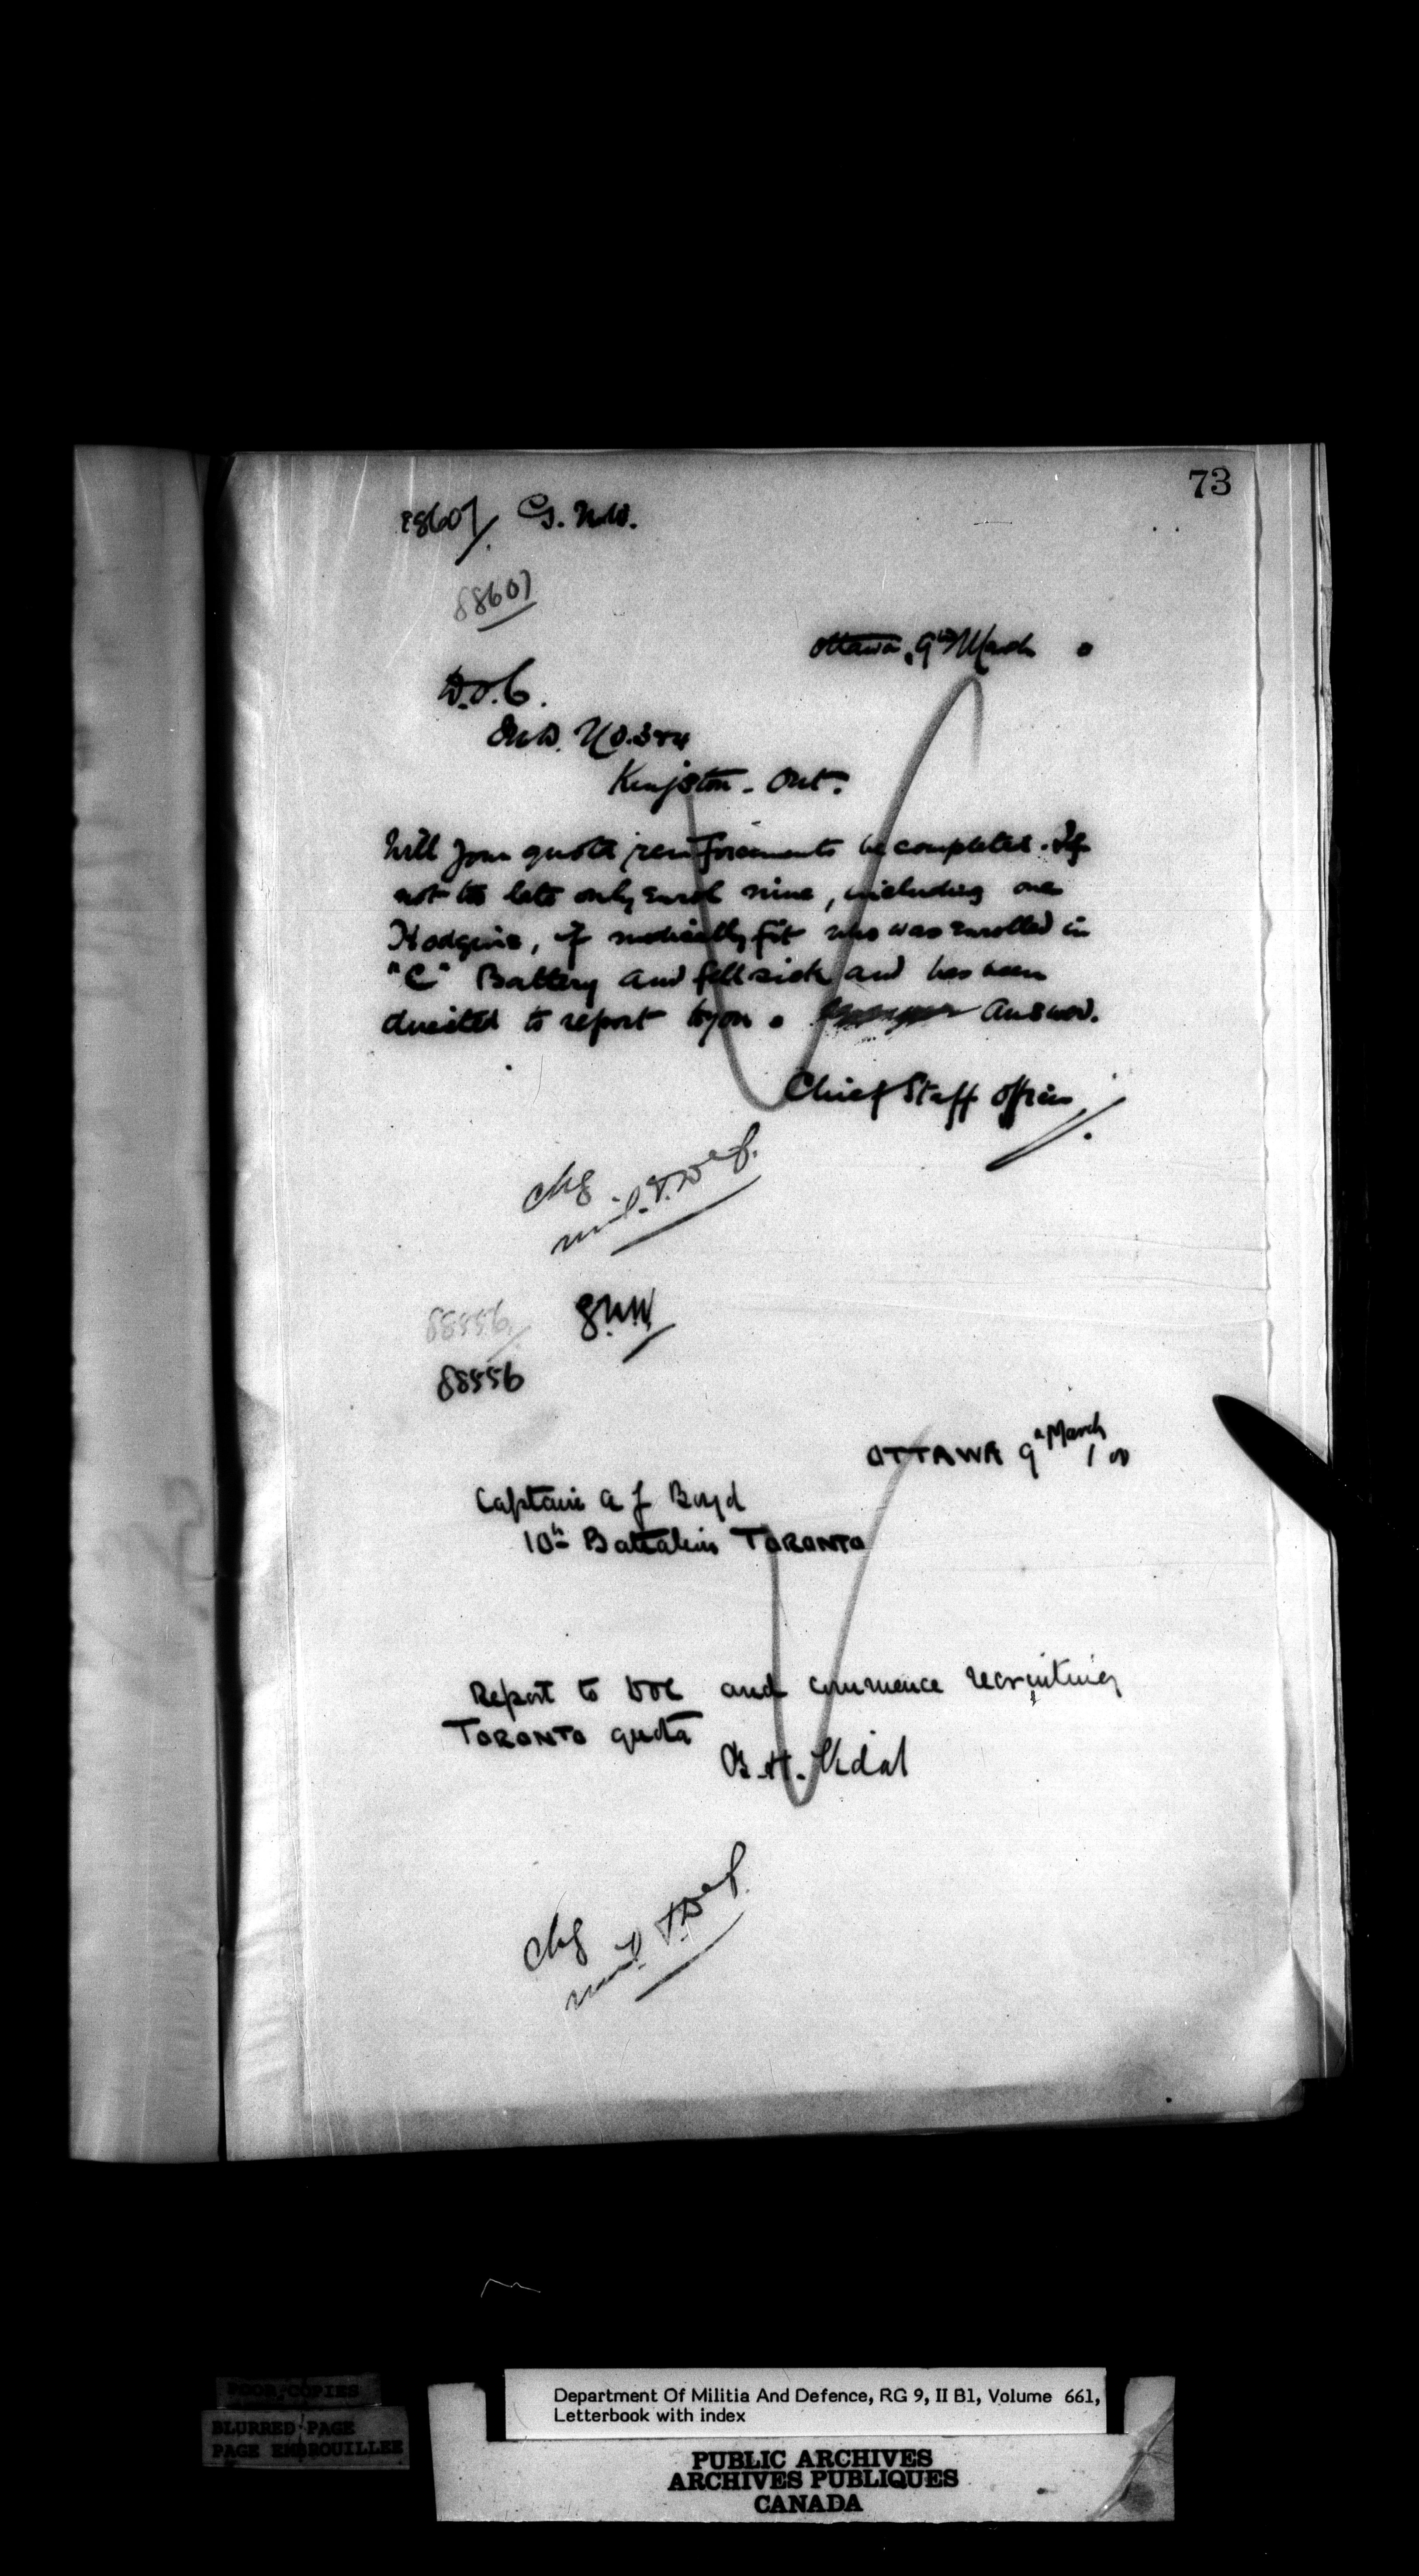 73
88607/ G.N.W.
88607
Ottawa, 9th March 0
D.O.C.
M.D. No. 3 & 4
Kingston - Ont.
Will your quota reinforcements be completed. If
not too late only enrol nine, including one
Hodgins, if medically fit who was enrolled in
"C" Battery and fell sick and has been
directed to report to you. Answer.
Chief Staff Officer
Chg
Mil. & Def.
88556 G.N.W.
88556
OTTAWA 9th March / 00
Captain A J Boyd
10th Battalion TORONTO
Report to DOC and commence recruiting
TORONTO quota
B.H. Vidal
Chg
Mil & Def.
POOR COPIES
BLURRED PAGE
PAGE EMBROUILLEE
Department Of Militia And Defence, RG 9, II B1, Volume 661,
Letterbook with index
PUBLIC ARCHIVES
ARCHIVES PUBLIQUES
CANADA